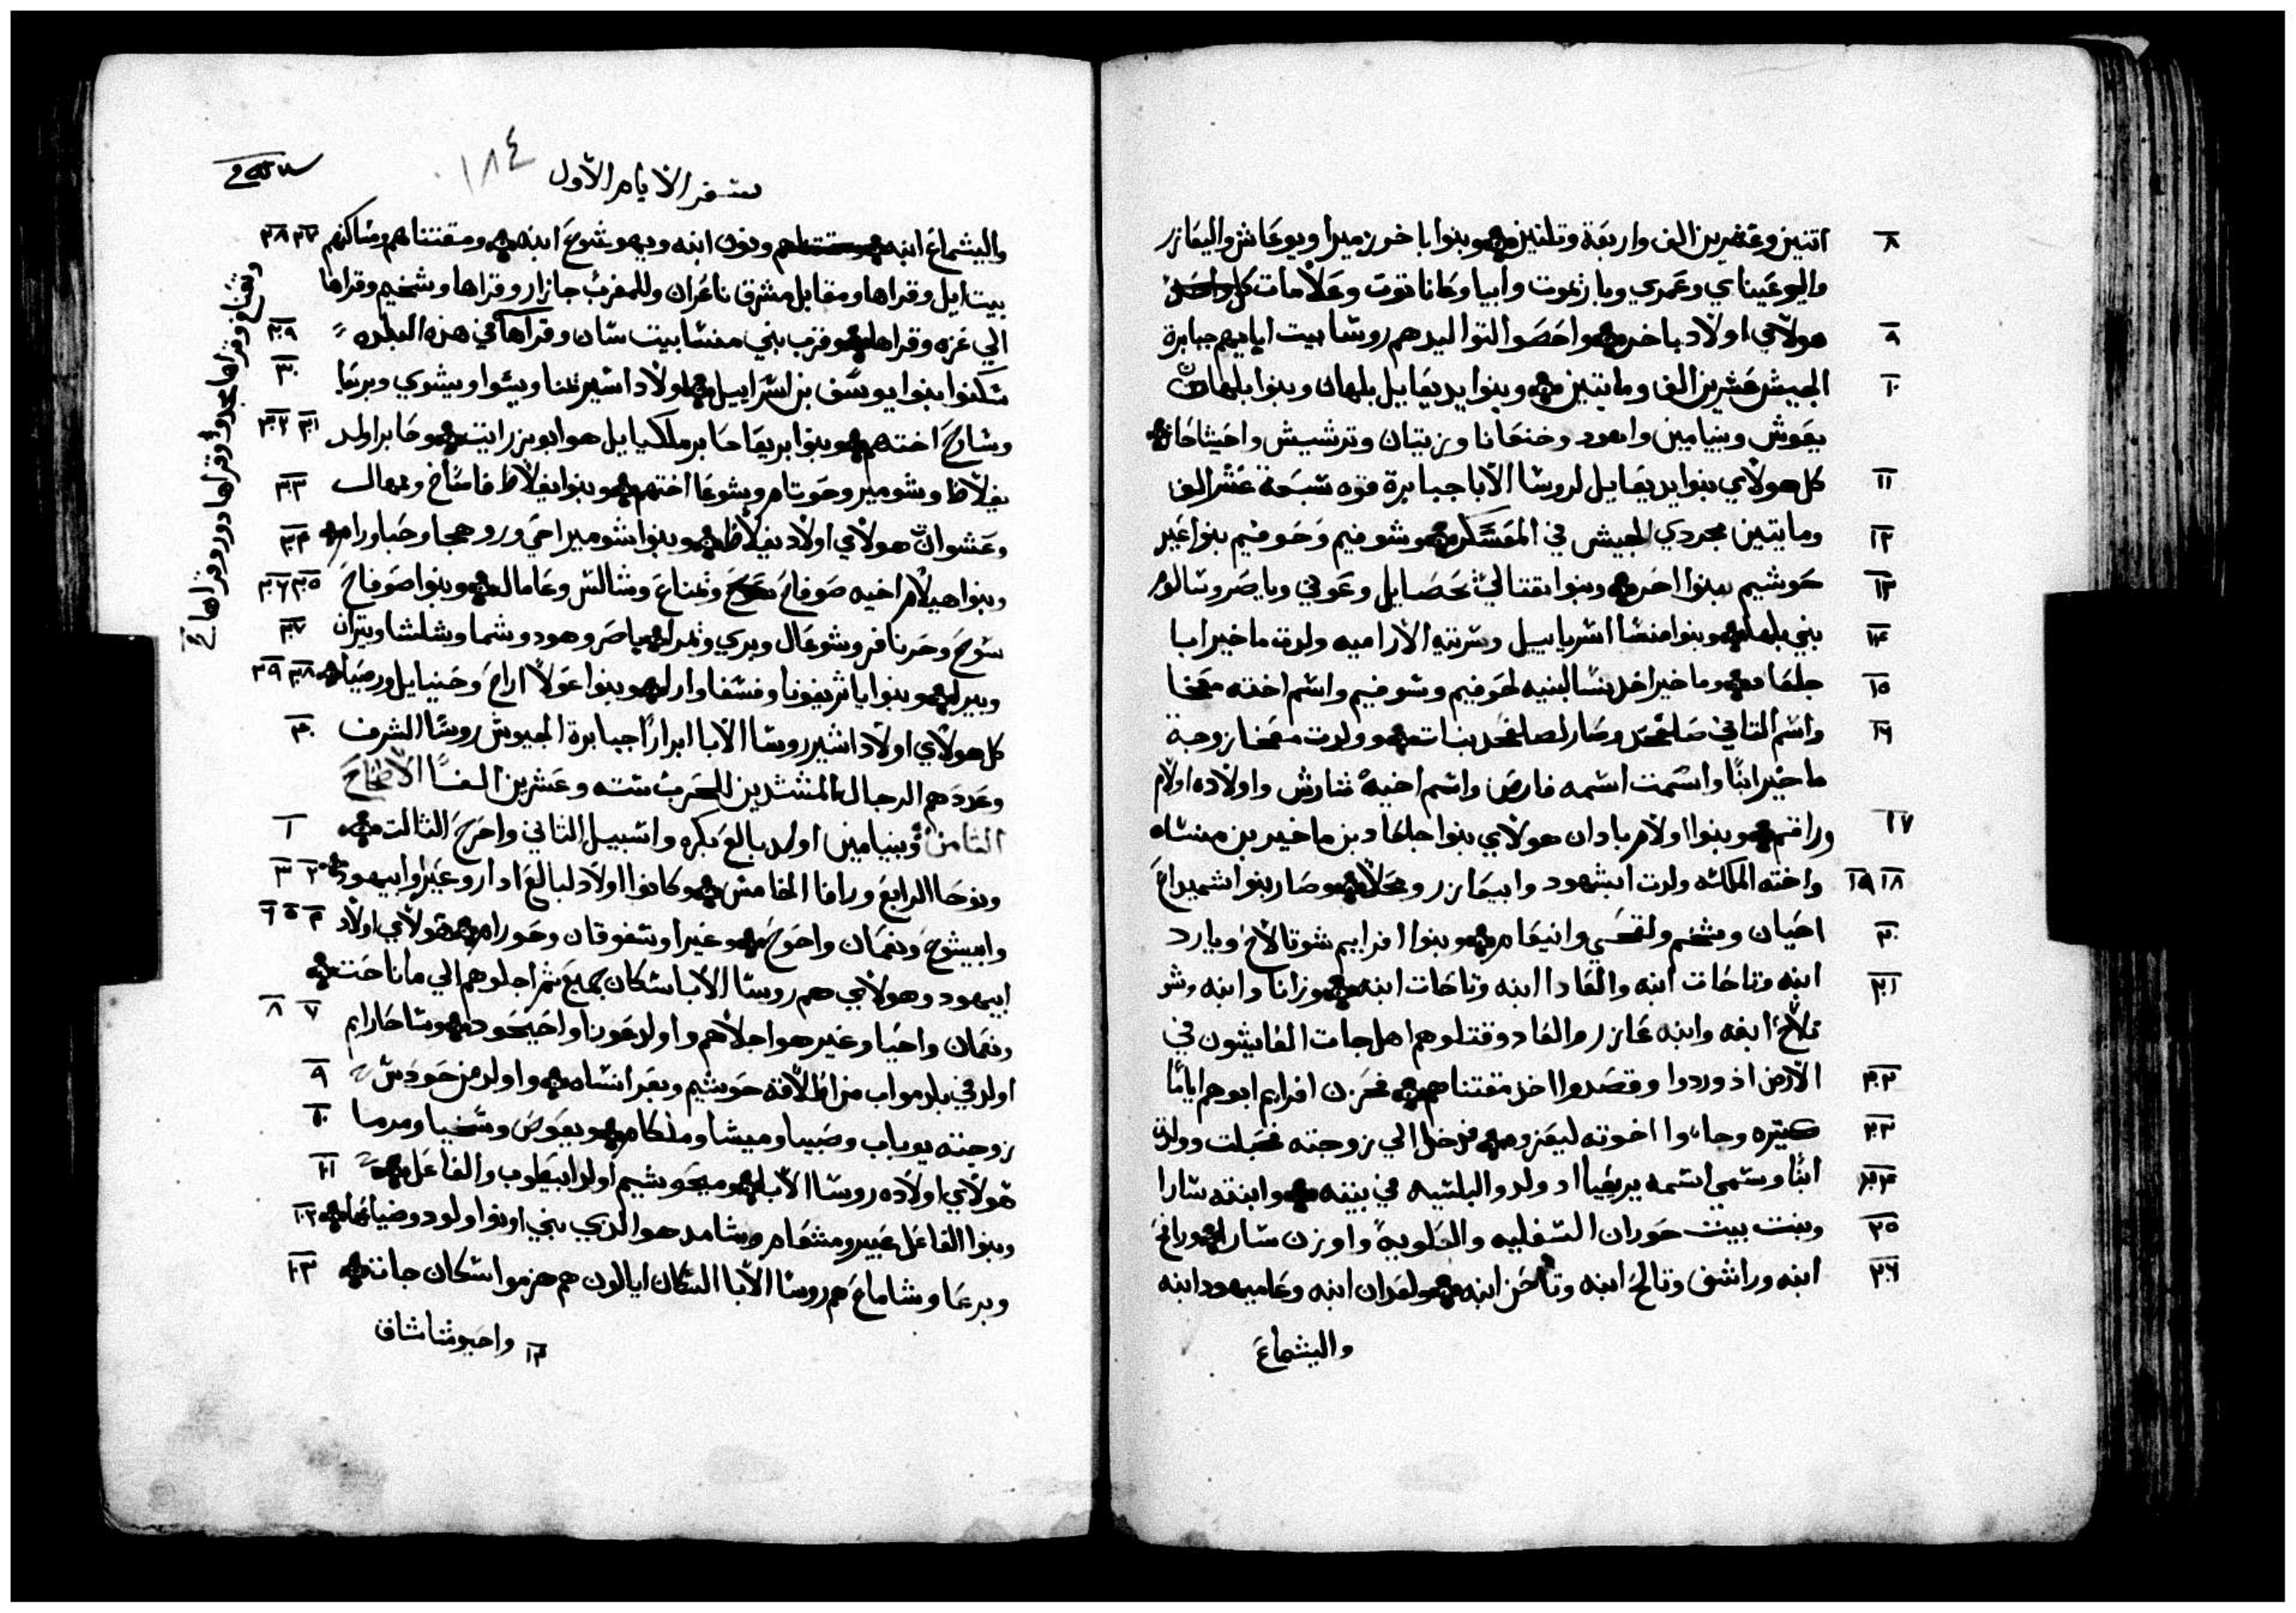 ٨ اتنين وعشرين الف واربعة وتلتين وبنوا باخور زميرا ويوعاش واليعازر
واليوعيناي وعمري وياريموت وابيا وعاناتوت وعلامات كل
٩ هولاي اولاد باخر واحصوا التواليدهم روسا بيت اباييهم جبابرة
١٠ الجيش عشرين الف ومايتين وبنوا يديعاييل بلهان وبنوا بلهان
يعوش وبنيامين واهود وخنعانا وزيتان وترشيش واخيشاحار
١١ كل هولاي بنوا يديعاييل لروسا الابا جبابرة قوه سبعة عشر الف
١٢ ومايتين مجردي الجيش في المعسكر وشوفيم وحوفيم بنوا عير
١٣ حوشيم بنوا احر وبنوا نفتالي يحصاييل وعوني وياصر وسالوم
١٤ بني بلها وبنوا منسا اشرياييل وسريته الاراميه ولدت ماخير ابا
١٥ جلعاد وماخير اخذ نسا لبنيه لحوفيم وشوفيم واسم اخته معخا
١٦ واسم التاني صلفحد وصار لصلفحد بنات وولدت معخا زوجة
ماخير ابنًا واسمت اسمه فارص واسم اخيه شارش واولاده اولام
١٧ وراقم وبنوا اولام بادان هولاي بنوا جلعاد بن ماخير بن منساه
١٨ ١٩ واخته الملكه ولدت ايشهود وابيعازر ومحلا وصار بنوا شميداع
٢٠ احيان وشخم ولقحي وانيعام وبنوا افرايم شوتالاخ ويارد
٢١ ابنه وتاحات ابنه والعادا ابنه وتاحات ابنه وزاناد ابنه وشو
تلاخ ابنه وابنه عازر والعاد وقتلوهم اهل جات الغايشون في
٢٢ الارض اذ وردوا وقصدوا اخذ مقتناهم فحزن افرايم ابوهم اياما
٢٣ كتيره وجاءوا اخوته ليعزوه فدخل الي زوجته فحبلت وولدت
٢٤ ابنًا وسمي اسمه بريعا اد ولد والبلشيه في بيته وابنته سارا
٢٥ وبنت بيت حوران السفليه والعلويه واوزن سارا ورافح
٢٦ ابنه وراشف وتالح ابنه وتاحن ابنه ولعدان ابنه وعاميهود ابنه
واليشماع
سفر الايام الاول ١٨٤
٢٧ ٢٨ واليشماع ابنه ونون ابنه ويهوشوع ابنه ومقتناهم ومساكنهم
بيت ايل وقراها ومقابل مشرق ناعران وللمغرب جازار وقراها وشخيم وقراها
٢٩ الي غزه وقراها وقرب بني منسا بيت سان وقراها في هذه البلده
٣٠ سكنوا بنوا يوسف بن اسراييل اولاد اشير يمنا ويشوا ويشوي وبريعا
٣١ ٣٢ وسارح اختهم وبنوا بريعا حابر ملكيايل هو ابو برزايت وحابر اولد
٣٣ يفلاط وشومير وحوتام وشوعا اختهم وبنوا يفلاط فاساخ وبمهال
٣٤ وعشوات هولاي اولاد يفلاط وبنوا شومير احي وروهجا وحبا ورام
٣٥ ٣٦ وبنوا هيلام اخيه صوفاح ويمناع وشالش وعامال وبنوا صوفاح
٣٧ سوح وحرنافر وشوعال وبري ويمرا باصر وهود وشما وشلشا ويتران
٣٨ ٣٩ وبيرا وبنوا ياثر يفونا وفسفا وارا وبنوا عولا اراح وحنيايل ورصيا
٤٠ كل هولاي اولاد اشير روسا الابا ابرارًا جبابرة الجيوش روسا الشرف
وعددهم الرجال المستشدين للحرب سته وعشرين الفًا الاصحاح
١ الثامن وبنيامين اولد بالع بكره واشبيل التاني واحرح التالت
٢ ٣ ونوحا الرابع ورافا الخامس وكانوا اولاد لبالع ادار وغيرا وابيهود
٤ ٥ ٦ وابيشوع ونعمان واحوح وغيرا وشفوفان وحورام وهولاي اولاد
ابيهود وهولاي هم روسا الابا سكان بجبع ثم اجلوهم الي ماناحت
٧ ٨ ونعمان واحيا وغير هوا جلاهم واولد عوزا واحيحود وشاحارايم
٩ اولد في بلد مواب من اطلاقه حوشيم وبعرا نساه واولد من حودش
١٠ زوجته يوباب وصبيا وميشا وملكام ويعوص وشخيا ومرما
١١ هولاي اولاده روسا الابا ومن حوشيم اولد ابيطوب والفاعل
١٢ وبنوا الفاعل عيبر ومشعام وشامد هو الذي بني اونوا ولود وضياعها
١٣ وبرعا وشاماع هم روسا الابا السكان ايالون هم هزموا سكان جات
١٤ واحيو شاشاق
وتعناخ وقراها مجدوا وقراها دور وقراها